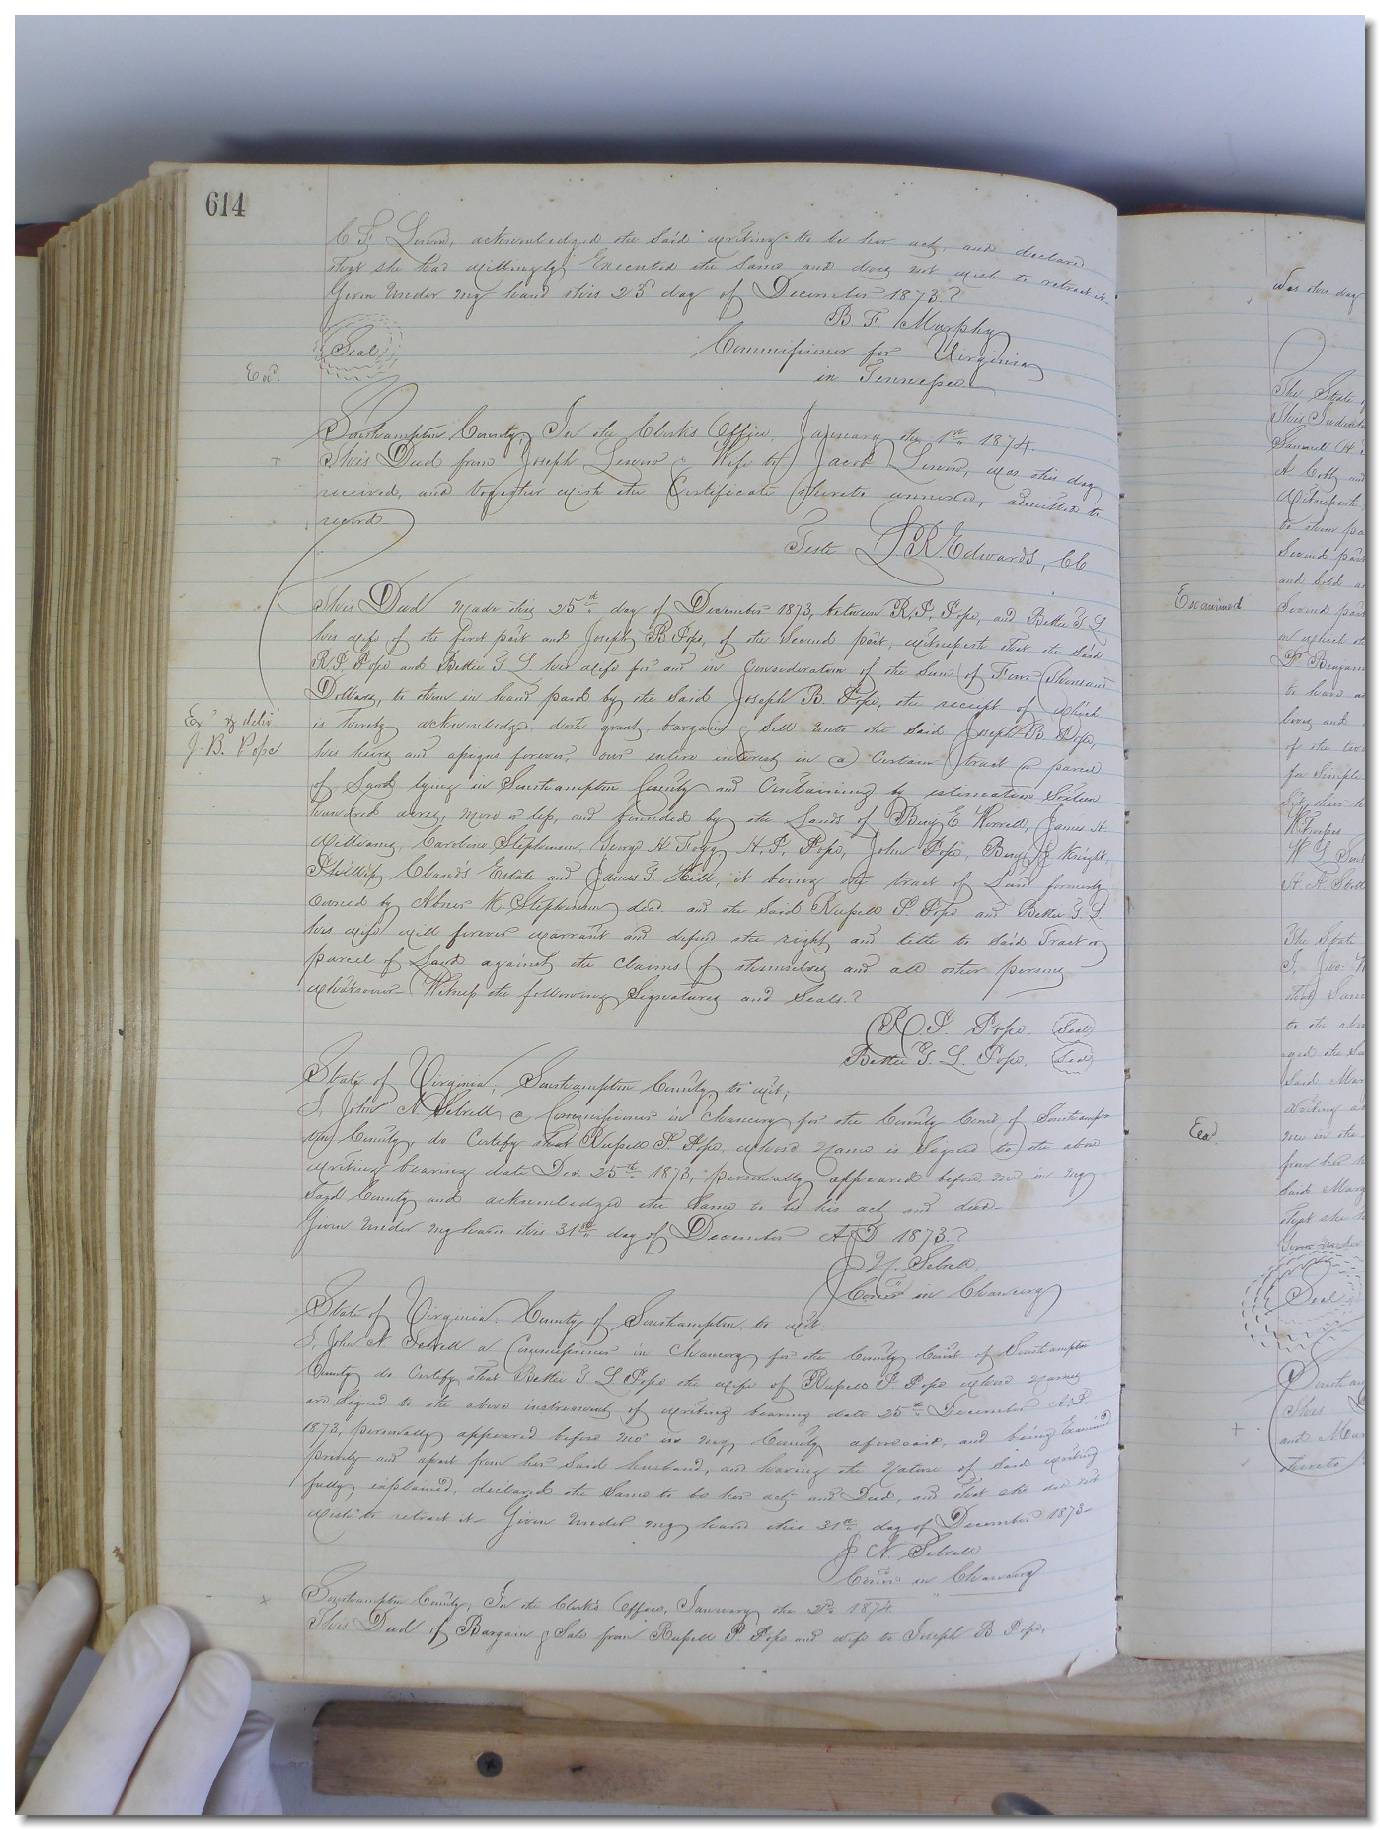 614
C F Leron, acknowledged the said writing to be her act, and declared
that she had willingly Executed the same and does not wish to retract it.
Given under my hand this 23d day of December 1873.
B. F. Murphy
Seal
Commissioner for Virginia
in Tennessee
Exd.
Southampton County, In the Clerk's Office, January the 1st 1874.
This Deed from Joseph & Wife to Jacob, was this day
received, and together with the Certificate thereto annexed, admitted to
record
Teste L. R. Edwards, CC
This Deed made this 25th day of December 1873, between R. P. Pope, and Bettie T L
his wife, of the first part and Joseph B Pope, of the second part, witnesseth that the said
R P Pope and Bettie T L his wife for and in Consideration of the Sum of Four Thousand
Dollars, to them in hand paid by the said Joseph B. Pope, the receipt of which
Exd & deliv
is hereby acknowledge, doth grant, bargain & Sell unto the said Joseph B Pope,
J. B. Pope
his heirs and assigns forever, our entire interest in a Certain tract or parcel
of Land lying in Southampton County and Containing by estimation Sixteen
hundred acres, more or less, and bounded by the Lands of Benj E Worrell, James H
Williams, Caroline Stephenson, George H Fogg, H. P. Pope, John Pope, Benj Knight,
Phillip Estate and James T. Hill, it being the tract of Land formerly
owned by Abner K. Stephenson decd. and the said Russell P. Pope and Bettie T. L.
his wife will forever warrant and defend the right and title to said Tract or
parcel of Land against the claims of themselves and all other persons
whatsoever. Witness the following Signatures and Seals.
R. P. Pope Seal
Bettie T. L. Pope. Seal
State of Virginia, Southampton County to wit,
I, John N Sebrell a Commissioner in Chancery for the County Court of Southamp-
ton County, do Certify that Russell P. Pope, whose name is Signed to the above
writing bearing date Dec. 25th 1873, personally appeared before me in my
said County and acknowledged the same to be his act and deed.
Given under my hand this 31st day of December A D 1873.
J. N. Sebrell,
Comr in Chancery
State of Virginia. County of Southampton, to wit.
I, John N. Sebrell a Commissioner in Chancery for the County Court of Southampton
County do Certify that Bettie T. L Pope the wife of Russell P. Pope whose names
are signed to the above instrument of writing bearing date 25th December A.D.
1873, personally appeared before me in my County aforesaid, and being Examined
privily and apart from her said husband, and having the nature of said writing
fully explained, declared the same to be her act and Deed, and that she did not
wish to retract it. Given under my hand this 31st day of December 1873.
J. N. Sebrell
Comr in Chancery
Southampton County, In the Clerk's Office, January the 2d 1874.
This Deed of Bargain & Sale from Russell P. Pope and wife to Joseph B Pope,
Was this day
The State
This Indent
Samuel
to them
Second part
and sold
Examined
Second part
in which
to have
of the
fee simple
The State
to the
Said Mar
Exd.
me in the
from her
Said Marg
that she
Seal
This
and Mar
thereto